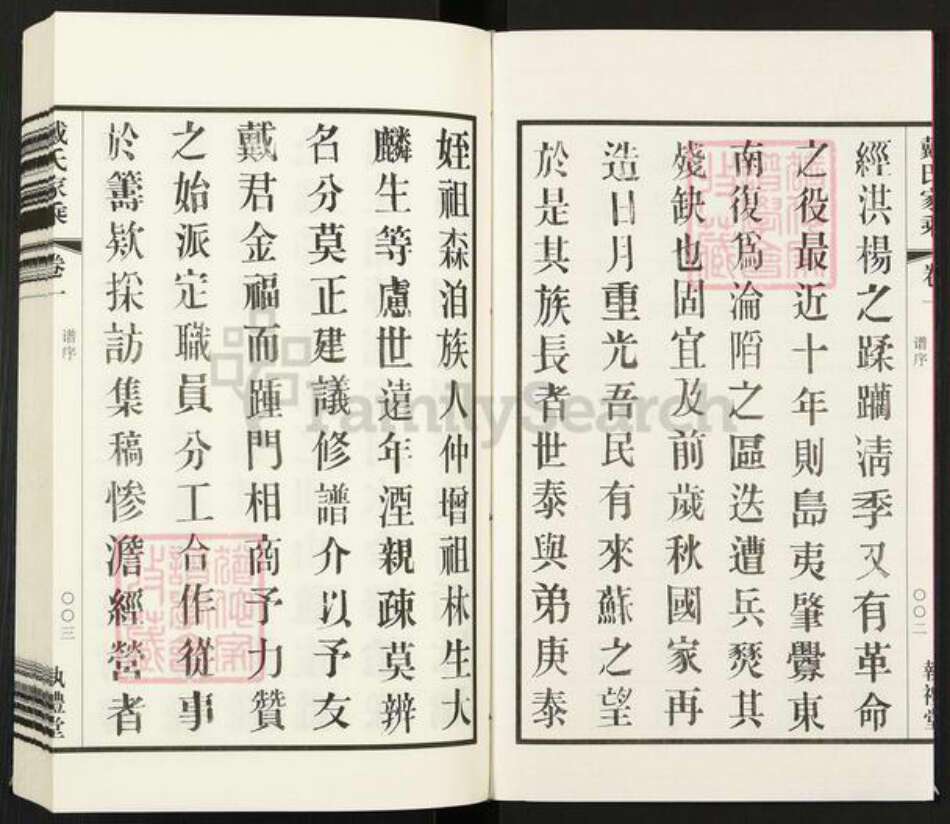 戴氏家乘
卷一
谱序
〇〇二
經洪楊之蹂躪淸季又有革命
之役最近十年則島夷肇釁東
南復爲淪陷之區迭遭兵燹其
殘缺也固宜及前歲秋國家再
造日月重光吾民有來蘇之望
於是其族長者世泰與弟庚泰
姪祖森洎族人仲增祖林生大
麟生等慮世遠年湮親疎莫辨
名分莫正建議修譜介以予友
戴君金福而踵門相商予力贊
之始派定職員分工合作從事
於籌欵採訪集稿慘澹經營者
戴氏家乘
卷一
谱序
〇〇三
執禮堂
FamilySearch